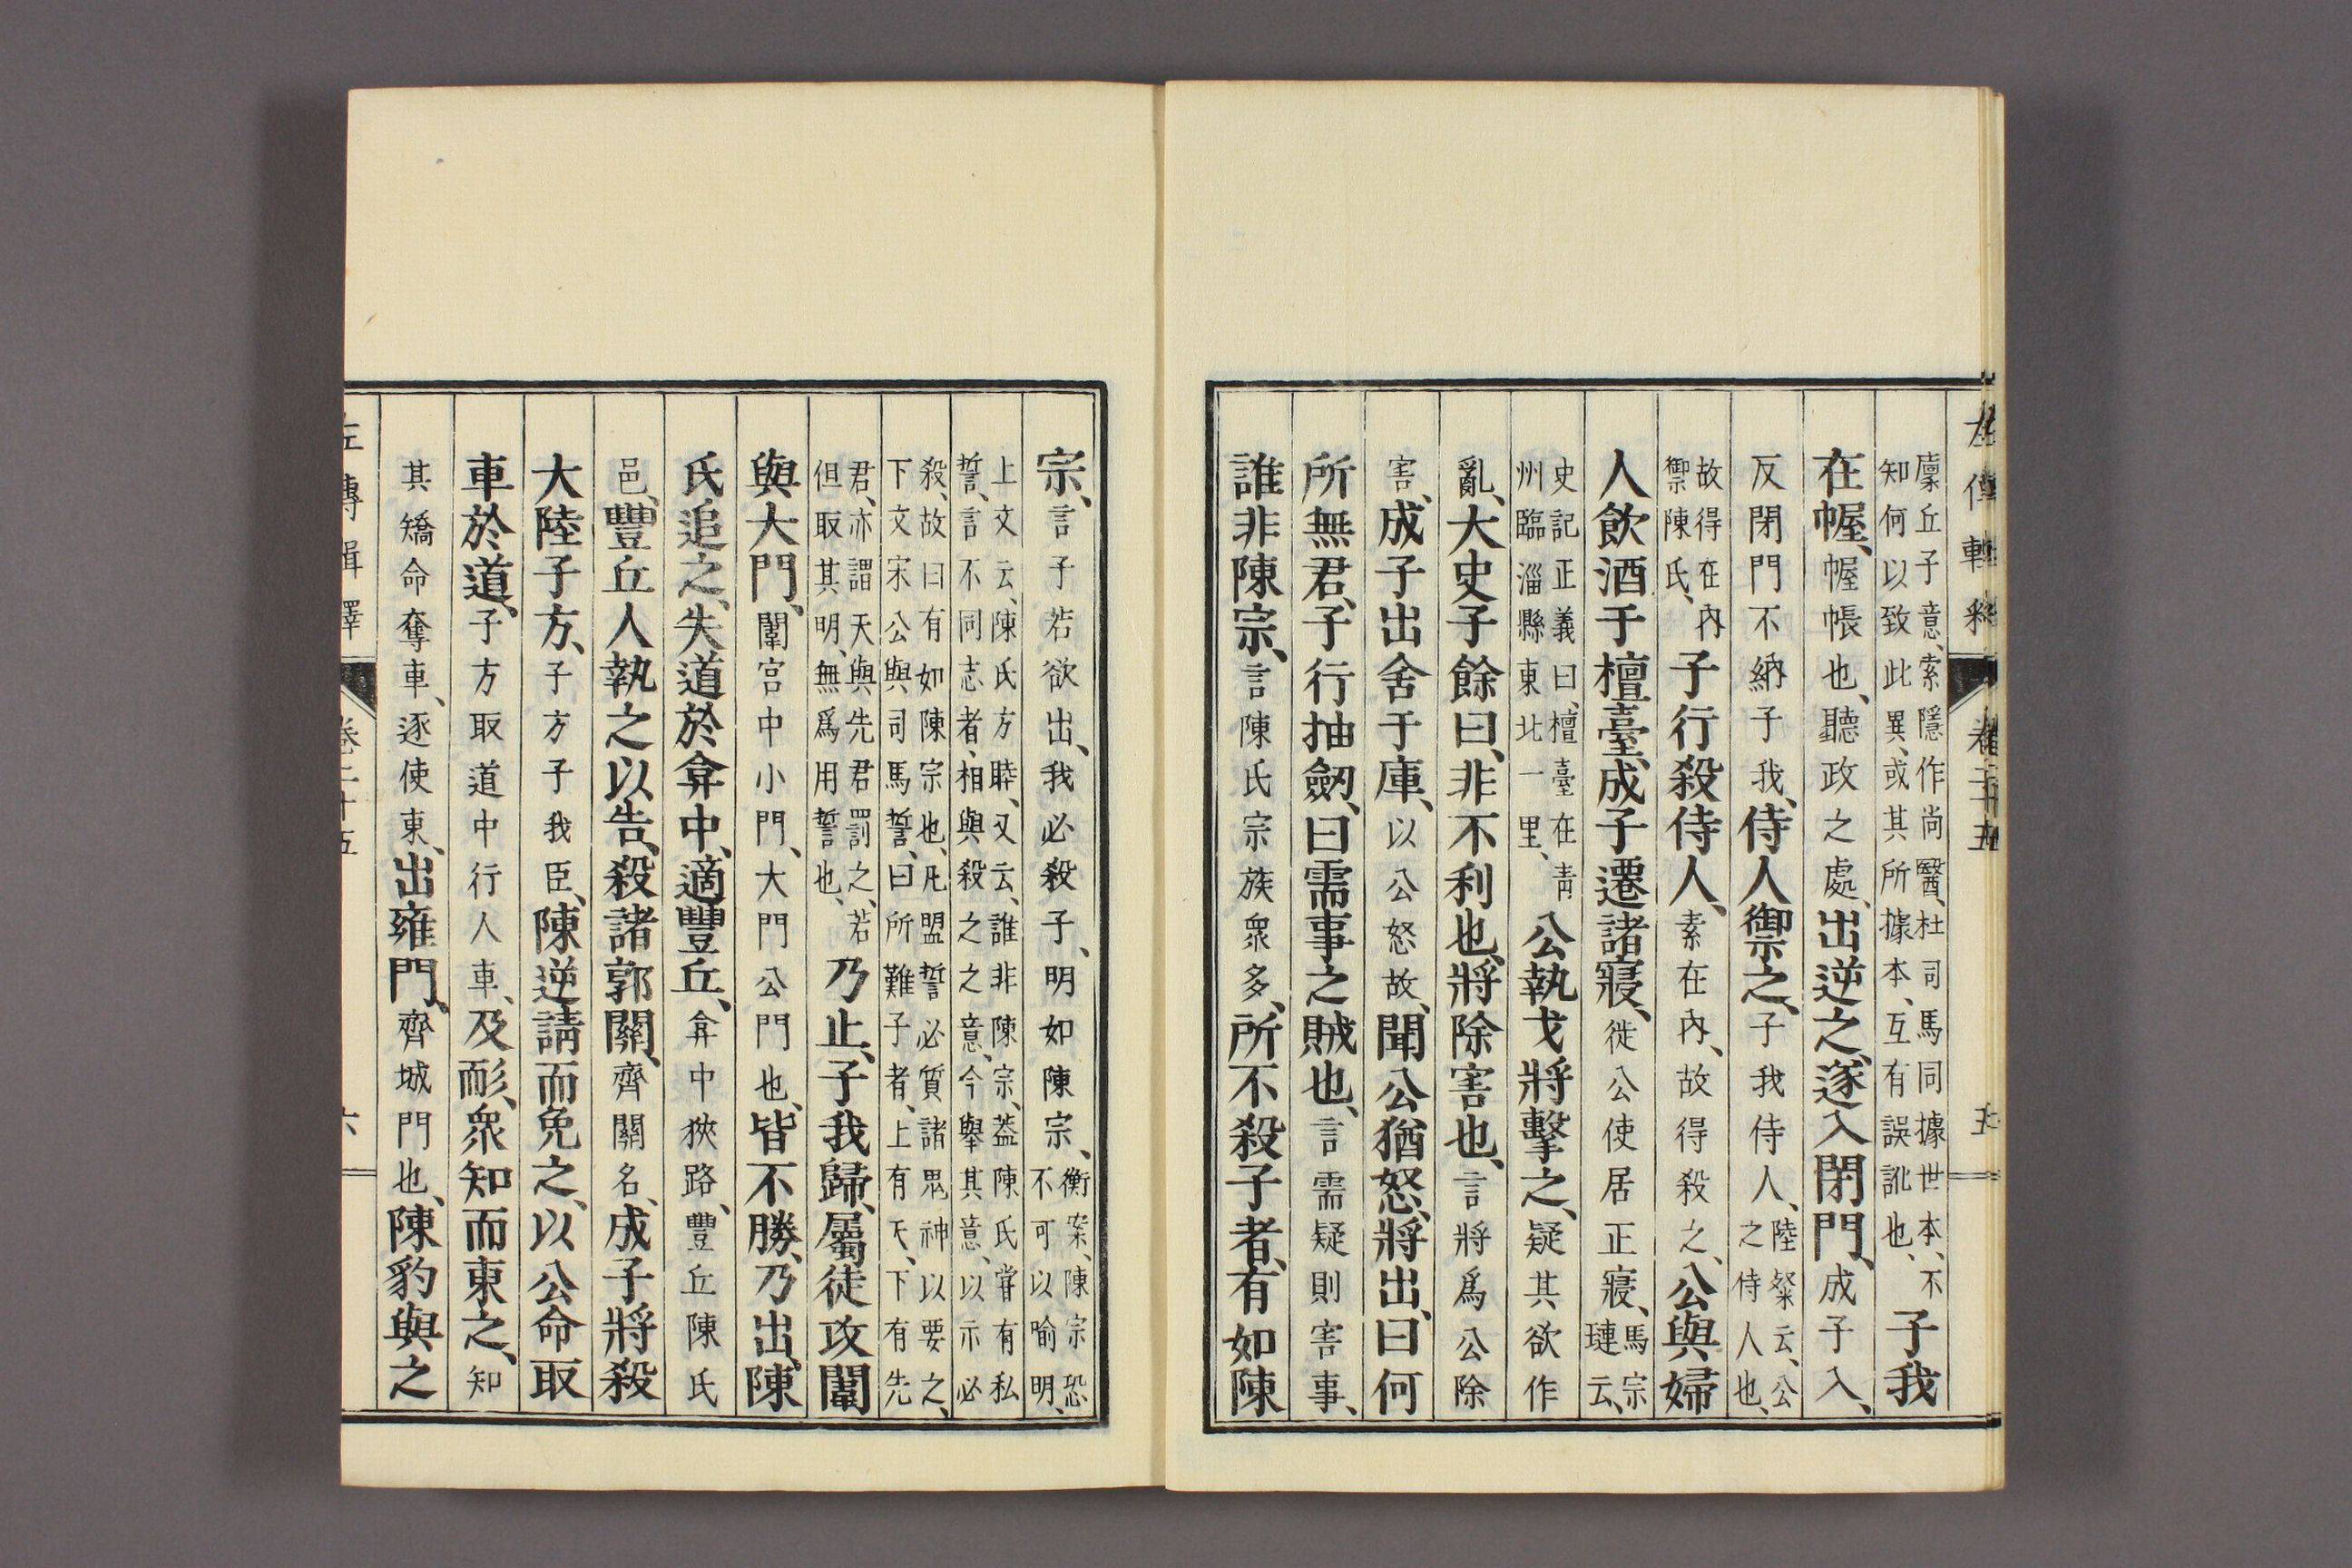 左傳輯釋 卷二十五 五
廩丘子意、索隱作尚醫、杜司馬同據世本、不
知何以致此異、或其所據本、互有誤訛也、子我
在幄、幄帳也、聽政之處、出逆之、遂入閉門、成子入、
反閉門不納子我、侍人禦之、子我侍人、陸粲云、公之侍人也、
故得在內禦陳氏、子行殺侍人、素在內、故得殺之、公與婦
人飲酒于檀臺、成子遷諸寢、徙公使居正寢、馬宗璉云、
史記正義曰、檀臺在青州臨淄縣東北一里、公執戈將擊之、疑其欲作
亂、大史子餘曰、非不利也、將除害也、言將爲公除
害、成子出舍于庫、以公怒故、聞公猶怒、將出、曰何
所無君、子行抽劒、曰需事之賊也、言需疑則害事、
誰非陳宗、言陳氏宗族衆多、所不殺子者、有如陳
宗、言子若欲出、我必殺子、明如陳宗、衡案、陳宗恐不可以喻明、
上文云、陳氏方睦、又云、誰非陳宗、葢陳氏嘗有私
誓、言不同志者、相與殺之之意、今舉其意、以示必
殺、故曰有如陳宗也、凡盟誓必質諸鬼神以要之、
下文宋公與司馬誓、曰所難子者、上有天、下有先
君、亦謂天與先君罰之、若但取其明、無爲用誓也、乃止、子我歸、屬徒攻闈
與大門、闈宮中小門、大門公門也、皆不勝、乃出、陳
氏追之、失道於弇中、適豐丘、弇中狹路、豐丘陳氏
邑、豐丘人執之以告、殺諸郭關、齊關名、成子將殺
大陸子方、子方子我臣、陳逆請而免之、以公命取
車於道、子方取道中行人車、及耏、衆知而東之、知
其矯命奪車、逐使東、出雍門、齊城門也、陳豹與之
左傳輯釋 卷二十五 六